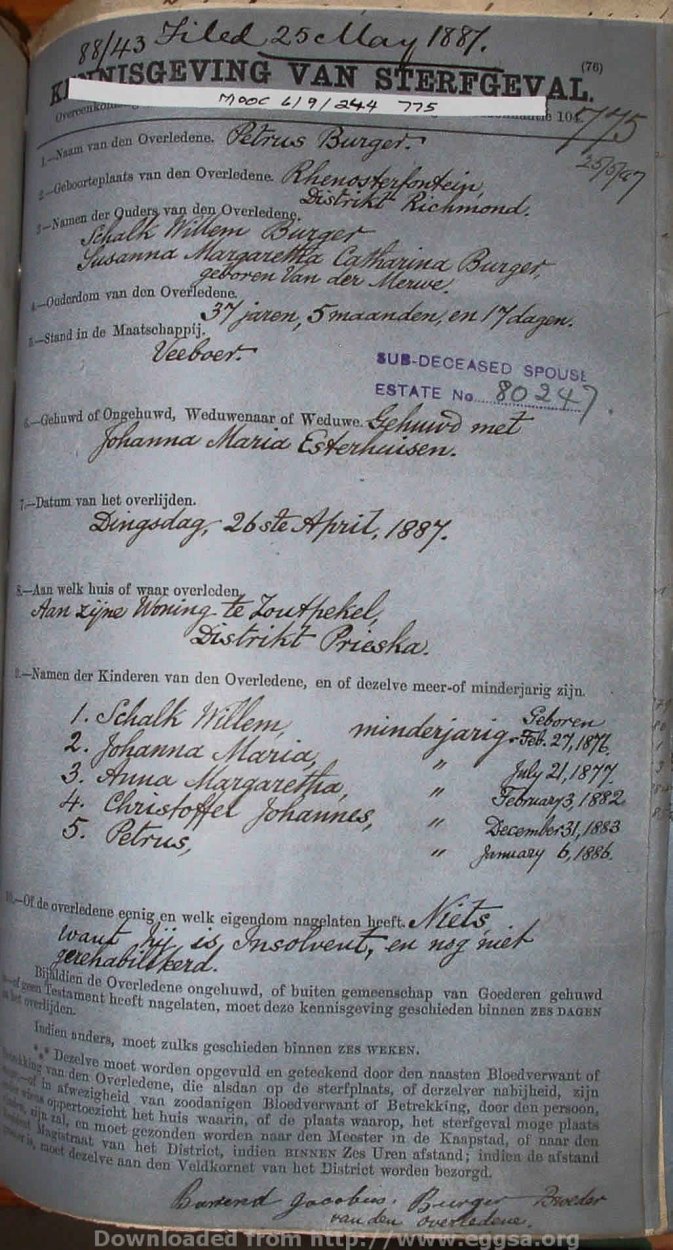 88/43 Filed 25 May 1887.
(76)
KENNISGEVING VAN STERFGEVAL.
MOOC 6/9/244 775
775
25/5/87
1.—Naam van den Overledene. Petrus Burger.
2.—Geboorteplaats van den Overledene. Rhenosterfontein,
Distrikt Richmond.
3.—Namen der Ouders van den Overledene.
Schalk Willem Burger
Susanna Margaretha Catharina Burger,
geboren Van der Merwe.
4.—Ouderdom van den Overledene.
37 jaren, 5 maanden, en 17 dagen.
5.—Stand in de Maatschappij.
Veeboer.
SUB-DECEASED SPOUSE
ESTATE No. 80247.
6.—Gehuwd of Ongehuwd, Weduwenaar of Weduwe. Gehuwd met
Johanna Maria Esterhuisen.
7.—Datum van het overlijden.
Dingsdag, 26ste April, 1887.
8.—Aan welk huis of waar overleden.
Aan zijne Woning te Zoutpekel,
Distrikt Prieska.
9.—Namen der Kinderen van den Overledene, en of dezelve meer-of minderjarig zijn.
Geboren
1. Schalk Willem, minderjarig Feb. 27, 1876.
2. Johanna Maria, " July 21, 1877.
3. Anna Margaretha, " February 3, 1882
4. Christoffel Johannes, " December 31, 1883
5. Petrus, " January 6, 1886.
10.—Of de overledene eenig en welk eigendom nagelaten heeft. Niets,
want hij is Insolvent, en nog niet
gerehabiliteerd.
Bijaldien de Overledene ongehuwd, of buiten gemeenschap van Goederen gehuwd
of geen Testament heeft nagelaten, moet deze kennisgeving geschieden binnen ZES DAGEN
het overlijden.
Indien anders, moet zulks geschieden binnen ZES WEKEN.
*** Dezelve moet worden opgevuld en geteekend door den naasten Bloedverwant of
van den Overledene, die alsdan op de sterfplaats, of derzelver nabijheid, zijn
of in afwezigheid van zoodanigen Bloedverwant of Betrekking, door den persoon,
oppertoezicht het huis waarin, of de plaats waarop, het sterfgeval moge plaats
zijn zal, en moet gezonden worden naar den Meester in de Kaapstad, of naar den
Magistraat van het District, indien BINNEN Zes Uren afstand; indien de afstand
is, moet dezelve aan den Veldkornet van het District worden bezorgd.
Barend Jacobus Burger Broeder
van den overledene.
Downloaded from http://www.eggsa.org